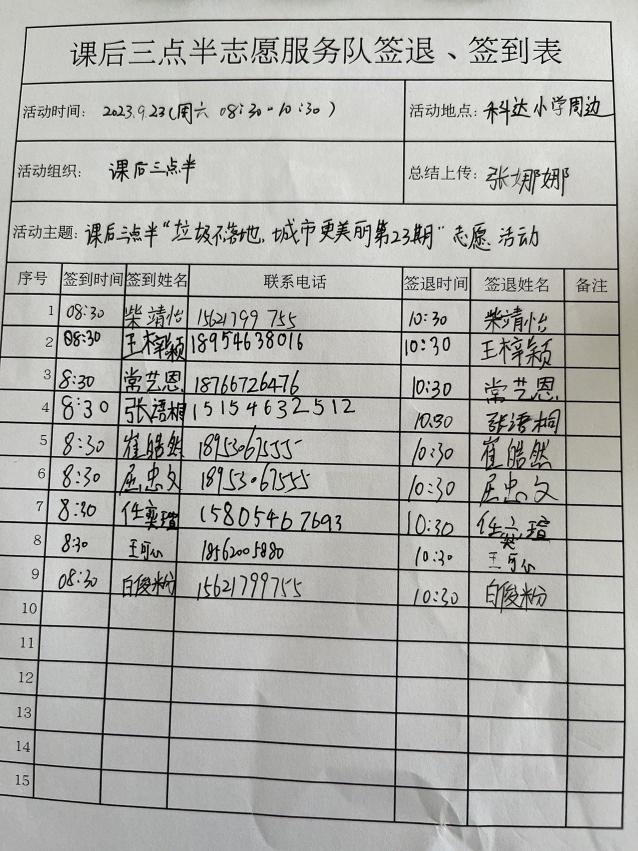 课后三点半志愿服务队签退、签到表
活动时间: 2023.9.23(周六 08:30-10:30) 活动地点: 科达小学周边
活动组织: 课后三点半 总结上传: 张娜娜
活动主题: 课后三点半“垃圾不落地,城市更美丽第23期”志愿活动
序号 签到时间 签到姓名 联系电话 签退时间 签退姓名 备注
1 08:30 柴靖怡 15621799755 10:30 柴靖怡
2 08:30 王梓颖 18954638016 10:30 王梓颖
3 8:30 常艺恩 18766726476 10:30 常艺恩
4 8:30 张语桐 15154632512 10:30 张语桐
5 8:30 崔皓然 18953067555 10:30 崔皓然
6 8:30 屈忠文 18953067555 10:30 屈忠文
7 8:30 任奕瑄 15805467693 10:30 任奕瑄
8 8:30 王可心 18562005880 10:30 王可心
9 08:30 白俊粉 15621799755 10:30 白俊粉
10
11
12
13
14
15